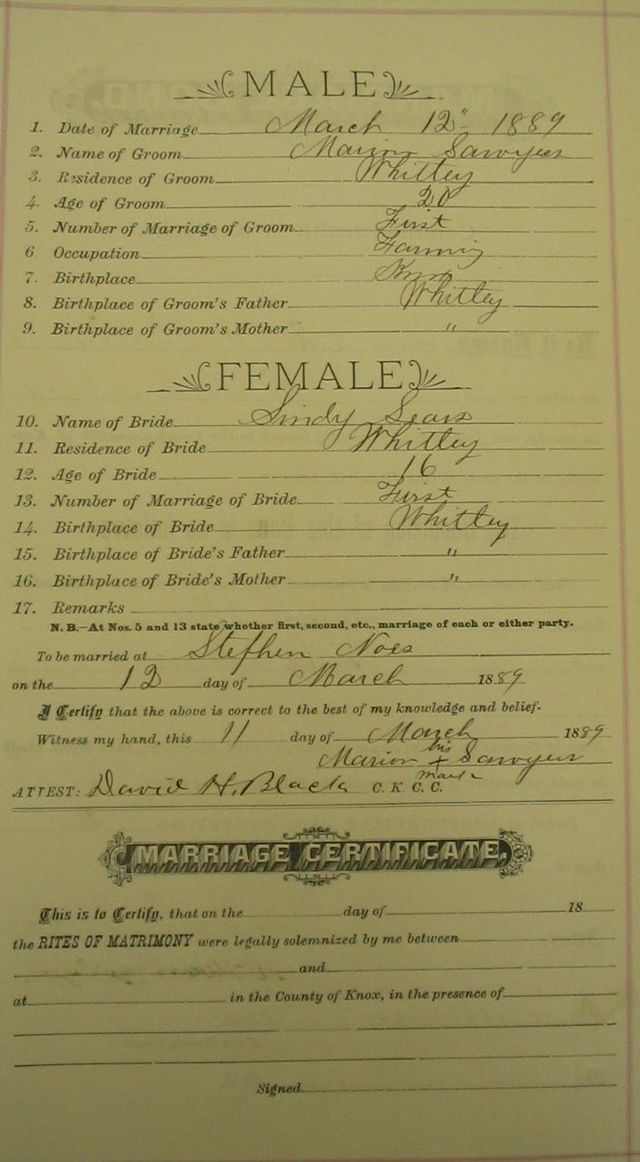 MALE
1. Date of Marriage March 12" 1889
2. Name of Groom Marion Sawyers
3. Residence of Groom Whitley
4. Age of Groom 20
5. Number of Marriage of Groom First
6 Occupation Farming
7. Birthplace Knox
8. Birthplace of Groom's Father Whitley
9. Birthplace of Groom's Mother "
FEMALE
10. Name of Bride Sindy Sears
11. Residence of Bride Whitley
12. Age of Bride 16
13. Number of Marriage of Bride First
14. Birthplace of Bride Whitley
15. Birthplace of Bride's Father "
16. Birthplace of Bride's Mother "
17. Remarks
N. B.—At Nos. 5 and 13 state whether first, second, etc., marriage of each or either party.
To be married at Stephen Noes
on the 12 day of March 1889
I Certify that the above is correct to the best of my knowledge and belief.
Witness my hand, this 11 day of March 1889
his
Marion + Sawyers
mark
ATTEST: David H. Black C. K. C. C.
MARRIAGE CERTIFICATE.
This is to Certify, that on the day of 18
the RITES OF MATRIMONY were legally solemnized by me between
and
at in the County of Knox, in the presence of
Signed